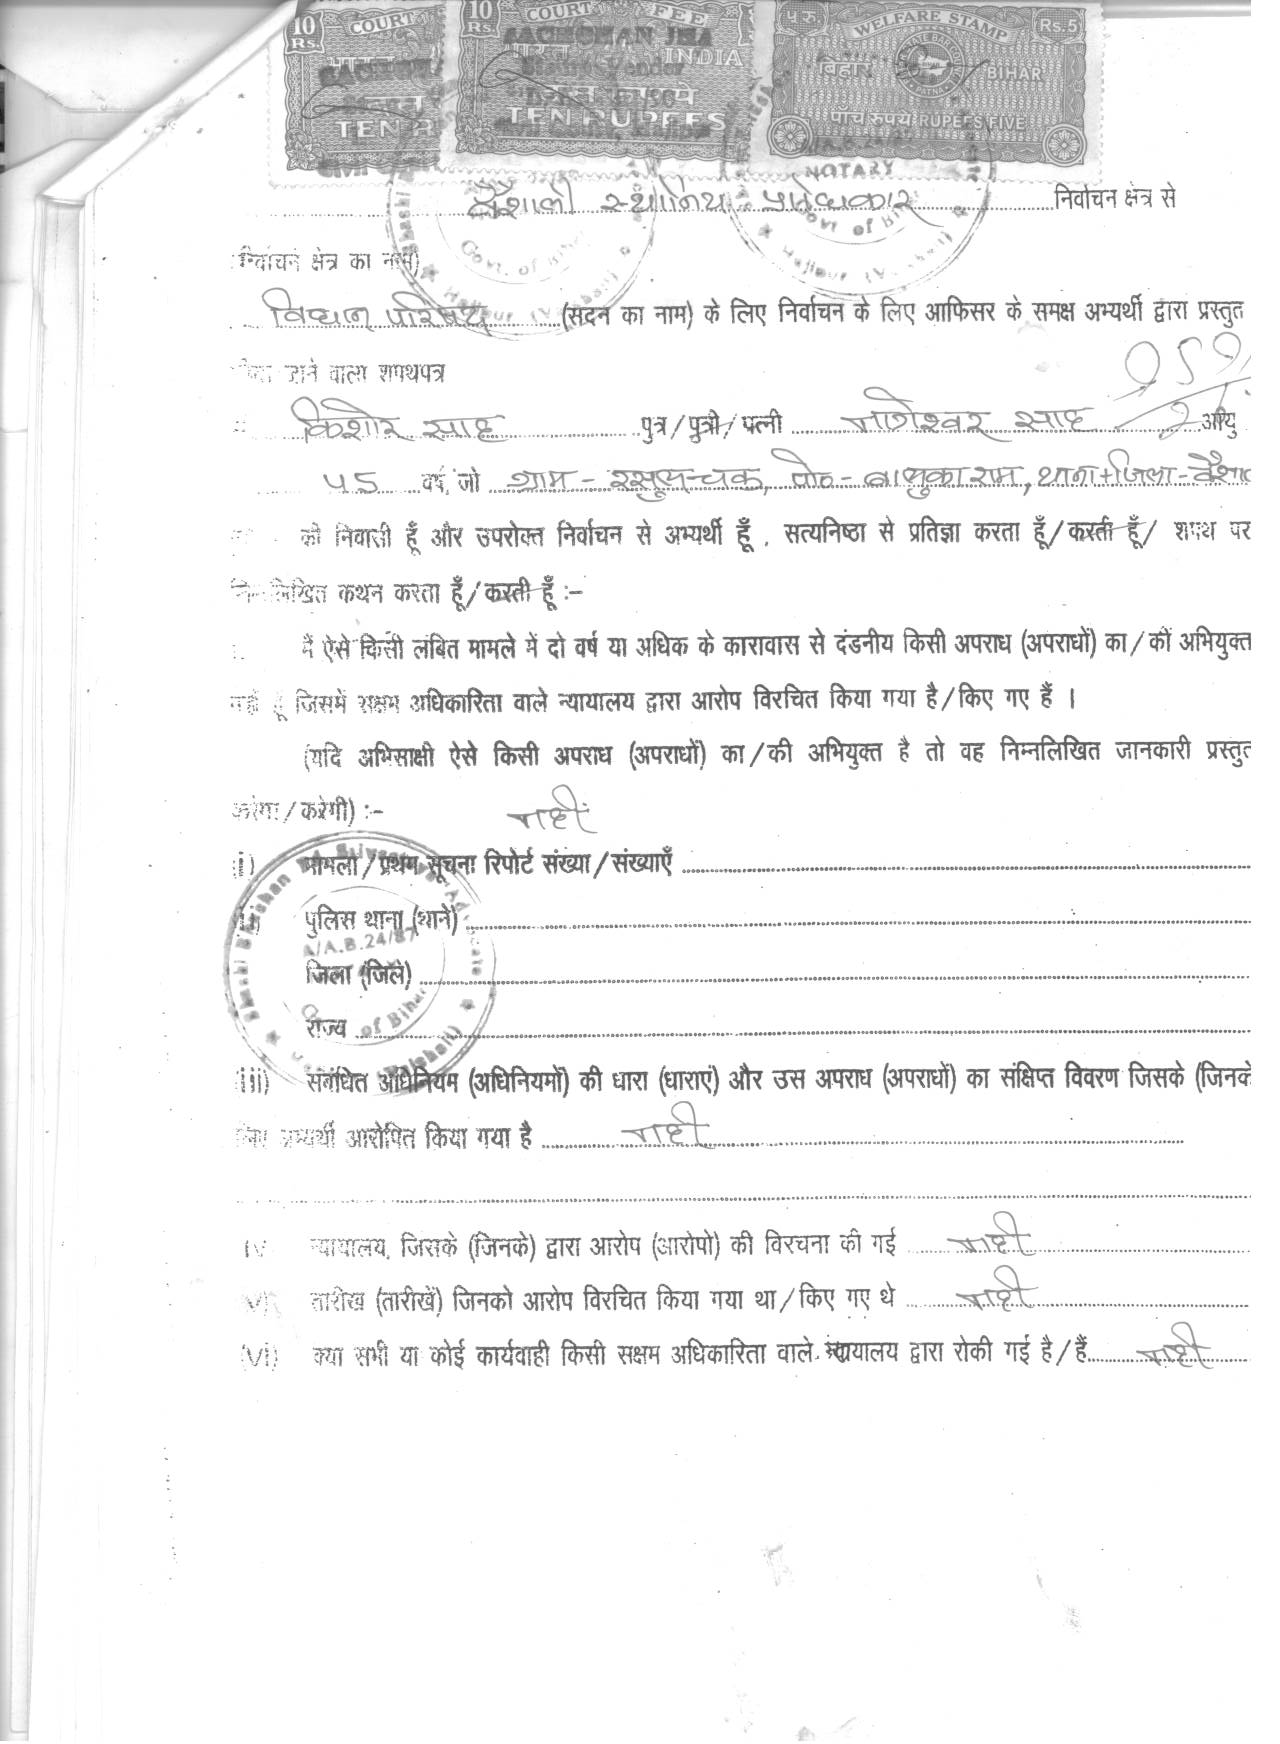 10 COURT 10 COURT FEE प रु. WELFARE STAMP Rs.5
Rs. Rs. भारत INDIA बिहार BIHAR
TEN R TEN RUPEES पाँच रुपये RUPEES FIVE
NOTARY
वैशाली स्थानिय प्राधिकार निर्वाचन क्षेत्र से
(निर्वाचन क्षेत्र का नाम)
विधान परिषद (सदन का नाम) के लिए निर्वाचन के लिए आफिसर के समक्ष अभ्यर्थी द्वारा प्रस्तुत
जाने वाला शपथपत्र
किशोर साह पुत्र/पुत्री/पत्नी नागेश्वर साह आयु
45 वर्ष, जो ग्राम - रसुलचक, पो०- बासुकाराम, थाना+जिला-
को निवासी हूँ और उपरोक्त निर्वाचन से अभ्यर्थी हूँ, सत्यनिष्ठा से प्रतिज्ञा करता हूँ/करती हूँ/ शपथ पर
निम्नलिखित कथन करता हूँ/करती हूँ :-
मैं ऐसे किसी लंबित मामले में दो वर्ष या अधिक के कारावास से दंडनीय किसी अपराध (अपराधों) का/की अभियुक्त
नहीं हूँ जिसमें सक्षम अधिकारिता वाले न्यायालय द्वारा आरोप विरचित किया गया है/किए गए हैं ।
(यदि अभिसाक्षी ऐसे किसी अपराध (अपराधों) का/की अभियुक्त है तो वह निम्नलिखित जानकारी प्रस्तुत
करेगा/करेगी) :- नहीं
(i) मामला/प्रथम सूचना रिपोर्ट संख्या/संख्याएँ
(ii) पुलिस थाना (थाने)
A/A.B.24/87
जिला (जिले)
राज्य
(iii) संबंधित अधिनियम (अधिनियमों) की धारा (धाराएं) और उस अपराध (अपराधों) का संक्षिप्त विवरण जिसके (जिनके
लिए अभ्यर्थी आरोपित किया गया है नहीं
iv न्यायालय, जिसके (जिनके) द्वारा आरोप (आरोपो) की विरचना की गई नहीं
(v) तारीख (तारीखें) जिनको आरोप विरचित किया गया था/किए गए थे नहीं
(vi) क्या सभी या कोई कार्यवाही किसी सक्षम अधिकारिता वाले न्यायालय द्वारा रोकी गई है/हैं नहीं